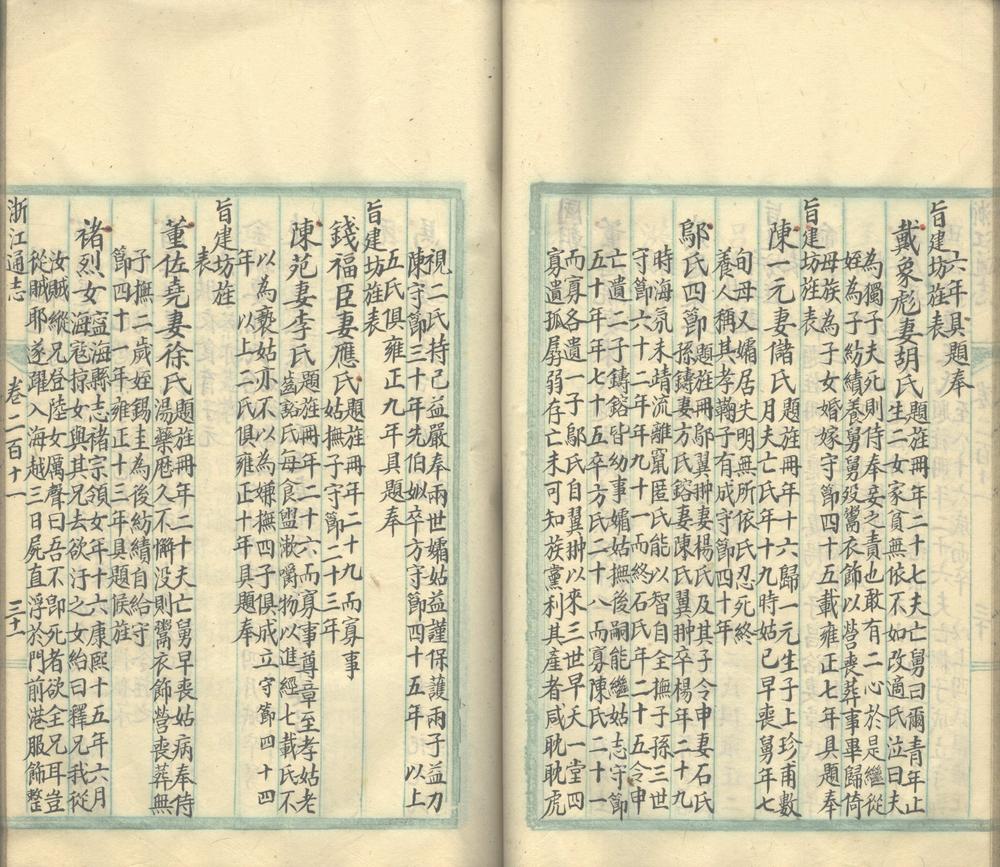 六年具題奉
旨建坊旌表
戴象彪妻胡氏題旌冊年二十七夫亡舅曰爾青年止
生二女家貧無依不如改適氏泣曰夫
為獨子夫死則侍奉妾之責也敢有二心於是繼從
姪為子紡績養舅舅歿鬻衣飾以營喪葬事畢歸倚
母族為子女婚嫁守節四十五載雍正七年具題奉
旨建坊旌表
陳一元妻儲氏題旌冊年十六歸一元生子上珍甫數
月夫亡氏年十九時姑已早喪舅年七
旬母又孀居失明無所依氏忍死終
養人稱其孝鞠子有成守節四十年
鄔氏四節題旌冊鄔翼翀妻楊氏及其子令申妻石氏
孫鑄妻方氏鎔妻陳氏翼翀卒楊年二十九
時海氛未靖流離竄匿氏能以智自全撫子孫三世
守節六十二年年九十一而終石氏年二十五令申
亡遺二子鑄鎔皆幼事孀姑撫後嗣能繼姑志守節
五十年年七十五卒方氏二十八而寡陳氏二十一
而寡各遺一子鄔氏自翼翀以來三世早夭一堂四
寡遺孤孱弱存亡未可知族黨利其產者咸眈眈虎
視二氏持己益嚴奉兩世孀姑益謹保護兩子益力
陳守節三十年先伯姒卒方守節四十五年 以上
五氏俱雍正九年具題奉
旨建坊旌表
錢福臣妻應氏題旌冊年二十九而寡事
姑撫子守節二十三年
陳苑妻李氏題旌冊年二十六而寡事尊章至孝姑老
齒豁氏每食盥漱嚼物以進經七載氏不
以為褻姑亦不以為嫌撫四子俱成立守節四十四
年 以上二氏俱雍正十年具題奉
旨建坊旌
表
董佐堯妻徐氏題旌冊年二十夫亡舅早喪姑病奉侍
湯藥歷久不懈沒則鬻衣飾營喪葬無
子撫二歲姪錫圭為後紡績自給守
節四十一年雍正十三年具題候旌
褚烈女寧海縣志褚宗領女年十六康熙十五年六月
海寇掠女與其兄去欲汙之女紿曰釋兄我從
汝賊縱兄登陸女厲聲曰吾不即死者欲全兄耳豈
從賊耶遂躍入海越三日屍直浮於門前港服飾整
浙江通志 卷二百十一 三十一